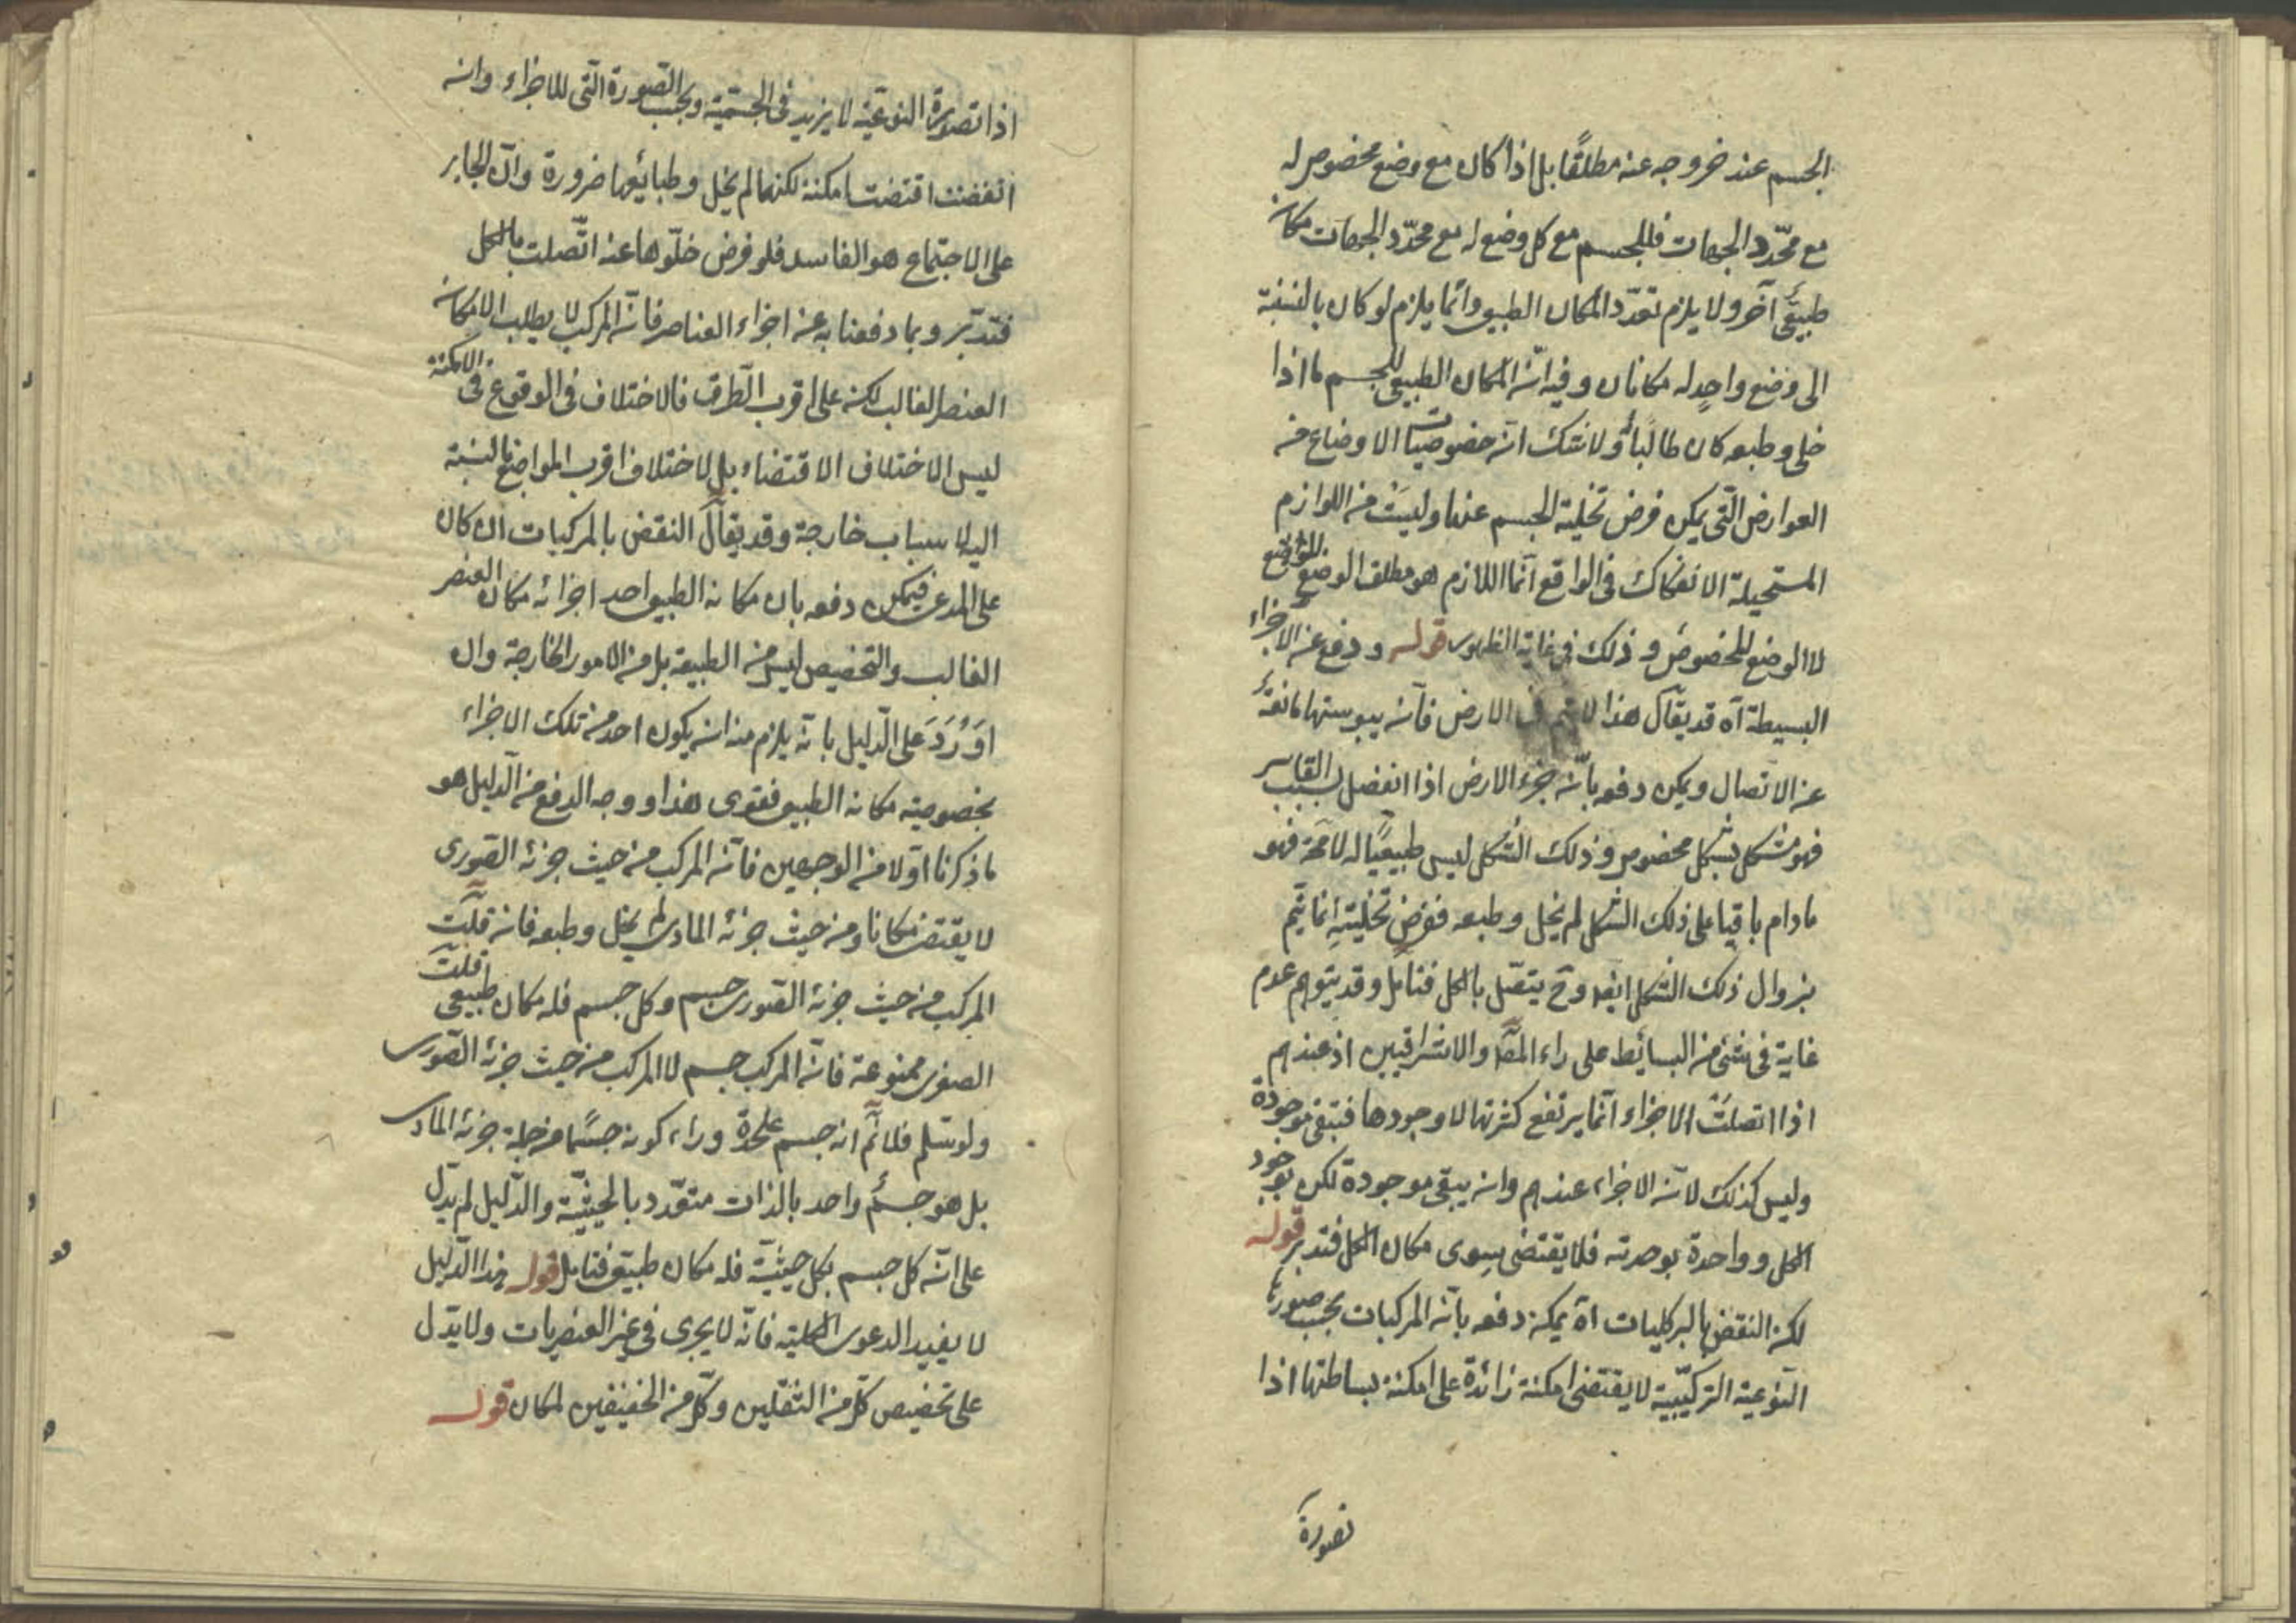 الجسم عند خروجه عنه مطلقًا بل اذا كان مع وضع مخصوص له
مع محدّد الجهات فللجسم مع كل وضع له مع محدّد الجهات مكان
طبيعىّ آخر ولا يلزم تعدّد المكان الطبيعى وانّما يلزم لو كان بالنسبة
الى وضع واحدٍ له مكانان وفيه انّ المكان الطبيعى للجسم ما اذا
خلى وطبعه كان طالبًا له ولا شك ان خصوصيات الاوضاع من
العوارض التى يمكن فرض تخلية الجسم عنها وليست من اللوازم
المستحيلة الانفكاك فى الواقع انّما اللازم هو مطلق الوضع
لا الوضع المخصوص وذلك فى غاية الظهور قوله ودفع عن الاجزاء
البسيطة آه قد يقال هذا لا يتم فى الارض فانّ يبوستها مانعة
عن الاتصال ويمكن دفعه بانّ جزء الارض اذا انفصل بسبب القاسر
فهو متشكل بشكل مخصوص وذلك الشكل ليس طبيعيًا له لا محة فهو
ما دام باقيا على ذلك الشكل لم يخل وطبعه ففرض تخليته انما يتم
بزوال ذلك الشكل ايضا وح يتصل بالكل فتامل وقد يتوهم عدم
غاية فى شئ من البسائط على راء المصـ والاشراقيين اذ عندهم
اذا اتصلت الاجزاء انّما يرتفع كثرتها لا وجودها فتبقى موجودة
وليس كذلك لانّ الاجزاء عندهم وان يبقى موجودة لكن بوجود
الكل وواحدة بوحدته فلا يقتضى سوى مكان الكل فتدبر قوله
لكن النقض بالمركبات آه يمكن دفعه بانّ المركبات بحسب صورتها
النوعية التركيبية لا يقتضى امكنة زائدة على امكنة بساطتها اذا
تصورة
اذا تصورة النوعية لا يزيد فى الجسمية وبحسب الصورة التى للاجزاء وان
انفضت اقتضت امكنة لكنها لم يخل وطبائعها ضرورة وانّ الجابر
على الاجتماع هو الفاسد فلو فرض خلوّها عنه اتّصلت بالكل
فتدبّر وبما دفعنا به عن اجزاء العناصر فانّ المركب لا يطلب الا مكان
العنصر الغالب لكن على اقرب الطرق فالاختلاف فى الوقوع فى الامكنة
ليس الاختلاف الاقتضاء بل لاختلاف اقرب المواضع بالنسبة
اليه لاسباب خارجة وقد يقال النقض بالمركبات ان كان
على المدعى فيمكن دفعه بان مكانه الطبيعى احد اجزائه مكان العنصر
الغالب والتخصيص ليس من الطبيعة بل من الامور الخارجة وان
اورد على الدّليل بانّه يلزم منه ان يكون احد من تلك الاجزاء
بخصوصيته مكانه الطبيعى فقوى هذا ووجه الدفع من الدليل هو
ما ذكرنا اوّلا من الوجهين فانّ المركب من حيث جزئه الصورى
لا يقتضى مكانا ومن حيث جزئه المادى لم يخل وطبعه فان قلت
المركب من حيث جزئه الصورى جسم وكل جسم فله مكان طبيعى قلت
الصغرى ممنوعة فانّ المركب جسم لا المركب من حيث جزئه الصورى
ولو سلم فلا نم انه جسم علىحدة وراء كونه جسمًا من جهة جزئه المادى
بل هو جسم واحد بالذات متعدّد بالحيثيّة والدّليل لم يدل
على انّ كل جسم بكل حيثيّة فله مكان طبيعى فتامل قوله هذا الدّليل
لا يفيد الدعوى الكلية فانّه لا يجرى فى غير العنصريات ولا يدّل
على تخصيص كلّ من الثقلين وكلّ من الخفيفين لمكان قوله